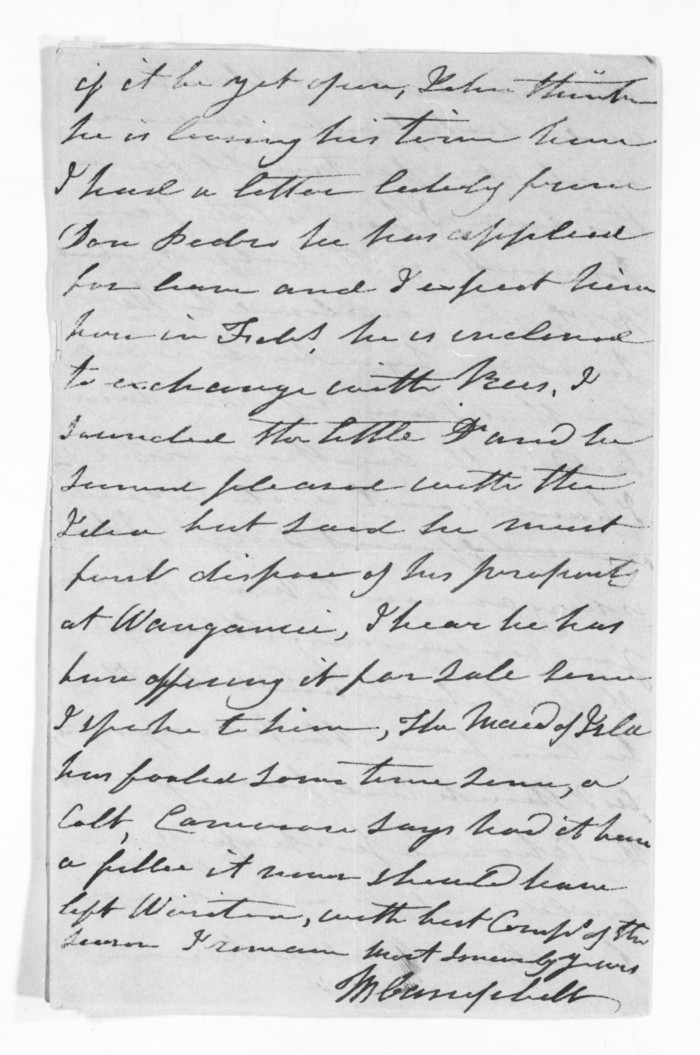 if it be yet open, John thinks
he is loosing his time here
I had a letter lately from
Don Pedro he has applied
for leave and I expect him
here in Feby. he is inclined
to exchange with Rees, I
sounded the little Dr and he
seemed pleased with the
Idea but said he must
first dispose of his property
at Wanganui, I hear he has
been offering it for sale since
I spoke to him, The Maid of Isla
has foaled some time since, a
Colt, Cameron says had it been
a fillie it never should have
left with best Compts. of the
season I remain most sincerely yours
M Campbell